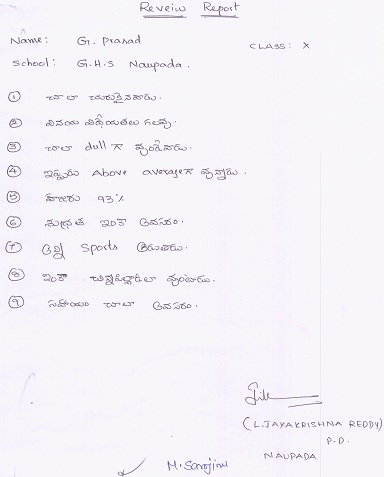 Reveiw Report
Name: G. Prasad
CLASS: X
School: G.H.S Naupada.
① చాలా చురుకైనవాడు.
② వినయ విధేయతలు గలవు.
③ చాలా dull గా వుండేవాడు.
④ ఇప్పుడు Above average గా వున్నాడు.
⑤ హాజరు 93%
⑥ శుభ్రత ఇంకా అవసరం.
⑦ అన్ని Sports ఆడుతాడు.
⑧ ఇంకా చిన్నపిల్లాడిలా వుంటాడు.
⑨ సహాయం చాలా అవసరం.
(L.JAYAKRISHNA REDDY)
P.D.
NAUPADA
M. Sarojini